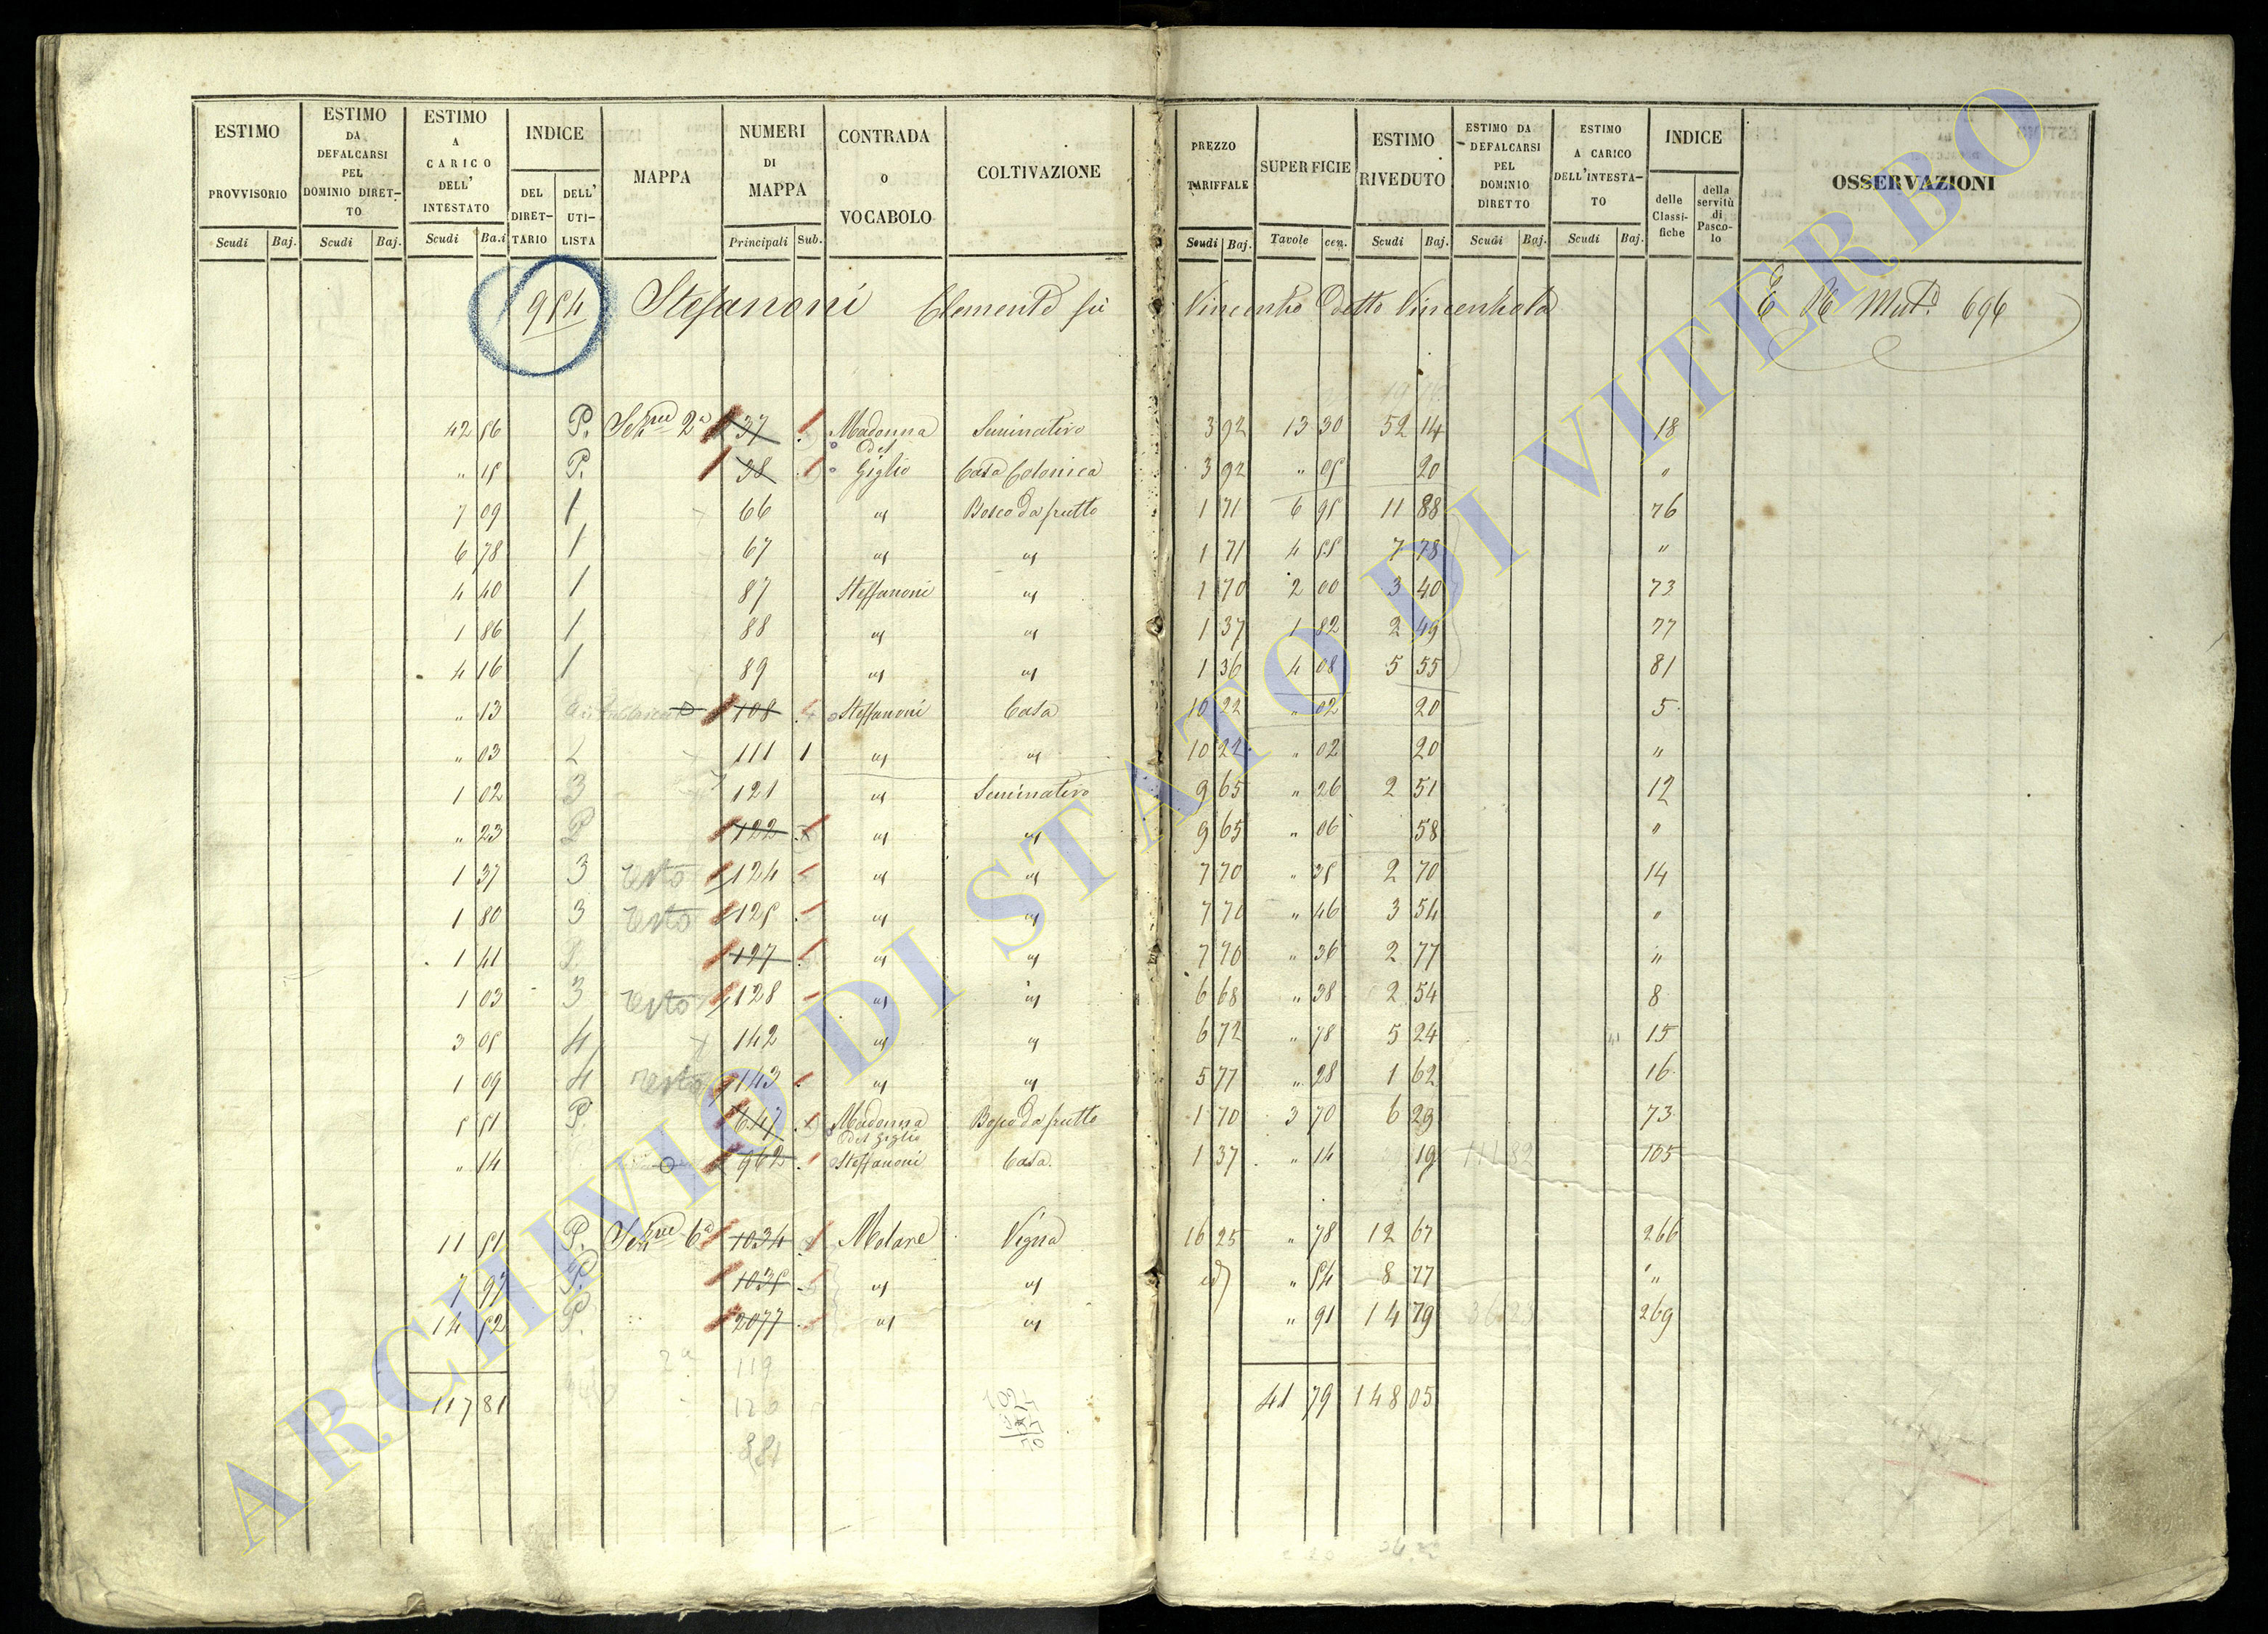 ESTIMO PROVVISORIO
ESTIMO DA DEFALCARSI PEL DOMINIO DIRETTO
ESTIMO A CARICO DELL' INTESTATO
INDICE
DEL DIRETTARIO
DELL' UTILISTA
MAPPA
NUMERI DI MAPPA
CONTRADA O VOCABOLO
COLTIVAZIONE
PREZZO TARIFFALE
SUPERFICIE
ESTIMO RIVEDUTO
ESTIMO DA DEFALCARSI PEL DOMINIO DIRETTO
ESTIMO A CARICO DELL'INTESTATO
INDICE
delle Classifiche
della servitù di Pascolo
OSSERVAZIONI
Scudi Baj. Scudi Baj. Scudi Ba.i Principali Sub. Scudi Baj. Tavole cen. Scudi Baj. Scudi Baj. Scudi Baj.
954 Stefanoni Clemente fù Vincenzo detto E Mut. 696
42 56 P. 2a 37 Madonna del Seminativo 3 92 13 30 52 14 18
" 15 P. 38 Giglio Casa Colonica 3 92 " 05 20 "
7 09 1 66 " Bosco da frutto 1 71 6 95 11 88 76
6 78 1 67 " " 1 71 4 55 7 78 "
4 40 1 87 Steffanoni " 1 70 2 00 3 40 73
1 86 1 88 " " 1 37 1 82 2 49 77
4 16 1 89 " " 1 36 4 08 5 55 81
" 13 108 Steffanoni Casa 10 22 " 02 20 5
" 03 2 111 1 " " 10 22 " 02 20 "
1 02 3 121 " Seminativo 9 65 " 26 2 51 12
" 23 P 122 " " 9 65 " 06 58 "
1 37 3 resto 124 " " 7 70 " 35 2 70 14
1 80 3 resto 125 " " 7 70 " 46 3 54 "
1 41 127 " " 7 70 " 36 2 77 "
1 03 3 resto 128 " " 6 68 " 38 2 54 8
3 05 4 142 " " 6 72 " 78 5 24 15
1 09 4 resto 143 " " 5 77 " 28 1 62 16
5 51 P. 647 Madonna del Giglio Bosco da frutto 1 70 3 70 6 29 73
" 14 962 Steffanoni Casa 1 37 " 14 19 111 82 105
11 51 P. 6a 1034 Molare Vigna 16 25 " 78 12 67 266
7 97 P. 1035 " " id " 54 8 77 "
14 52 P. 2077 " " " 91 14 79 36 23 269
2a 119
120
117 81 41 79 148 05
881
ARCHIVIO DI STATO DI VITERBO